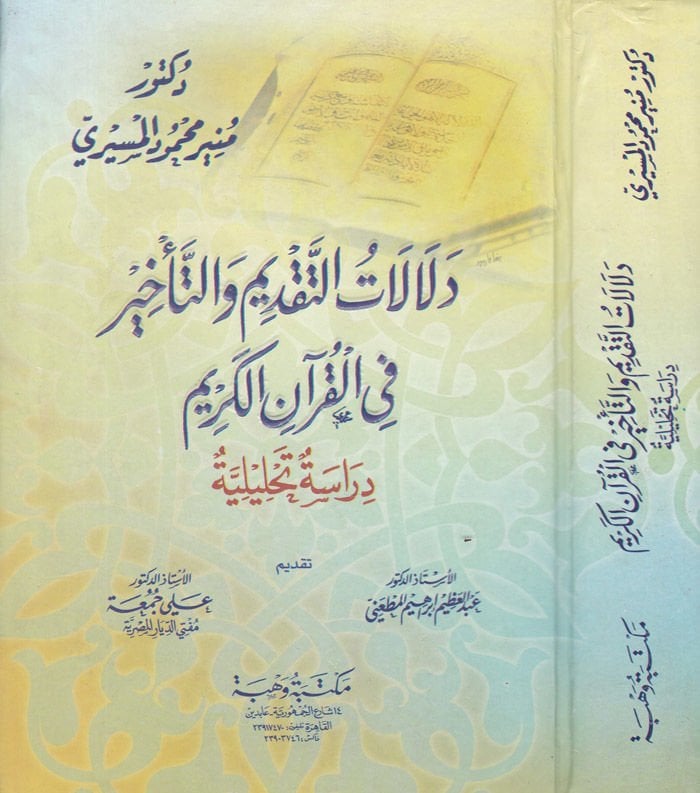 دكتور
منير محمود المسيري
دَلَالَاتُ التَّقْدِيمِ وَالتَّأْخِيْرِ
فِي الْقُرْآنِ الْكَرِيْمِ
دِرَاسَةٌ تَحْلِيْلِيَّةٌ
تقديم
الأستاذ الدكتور
عبد العظيم إبراهيم المطعني
الأستاذ الدكتور
علي جمعة
مفتي الديار المصرية
مكتبة وهبة
١٤ شارع الجمهورية - عابدين
القاهرة تليفون: ٢٣٩١٧٤٧٠
فاكس: ٢٣٩٠٣٧٤٦
دكتور منير محمود المسيري
دلالات التقديم والتأخير في القرآن الكريم
دراسة تحليلية
مكتبة وهبة